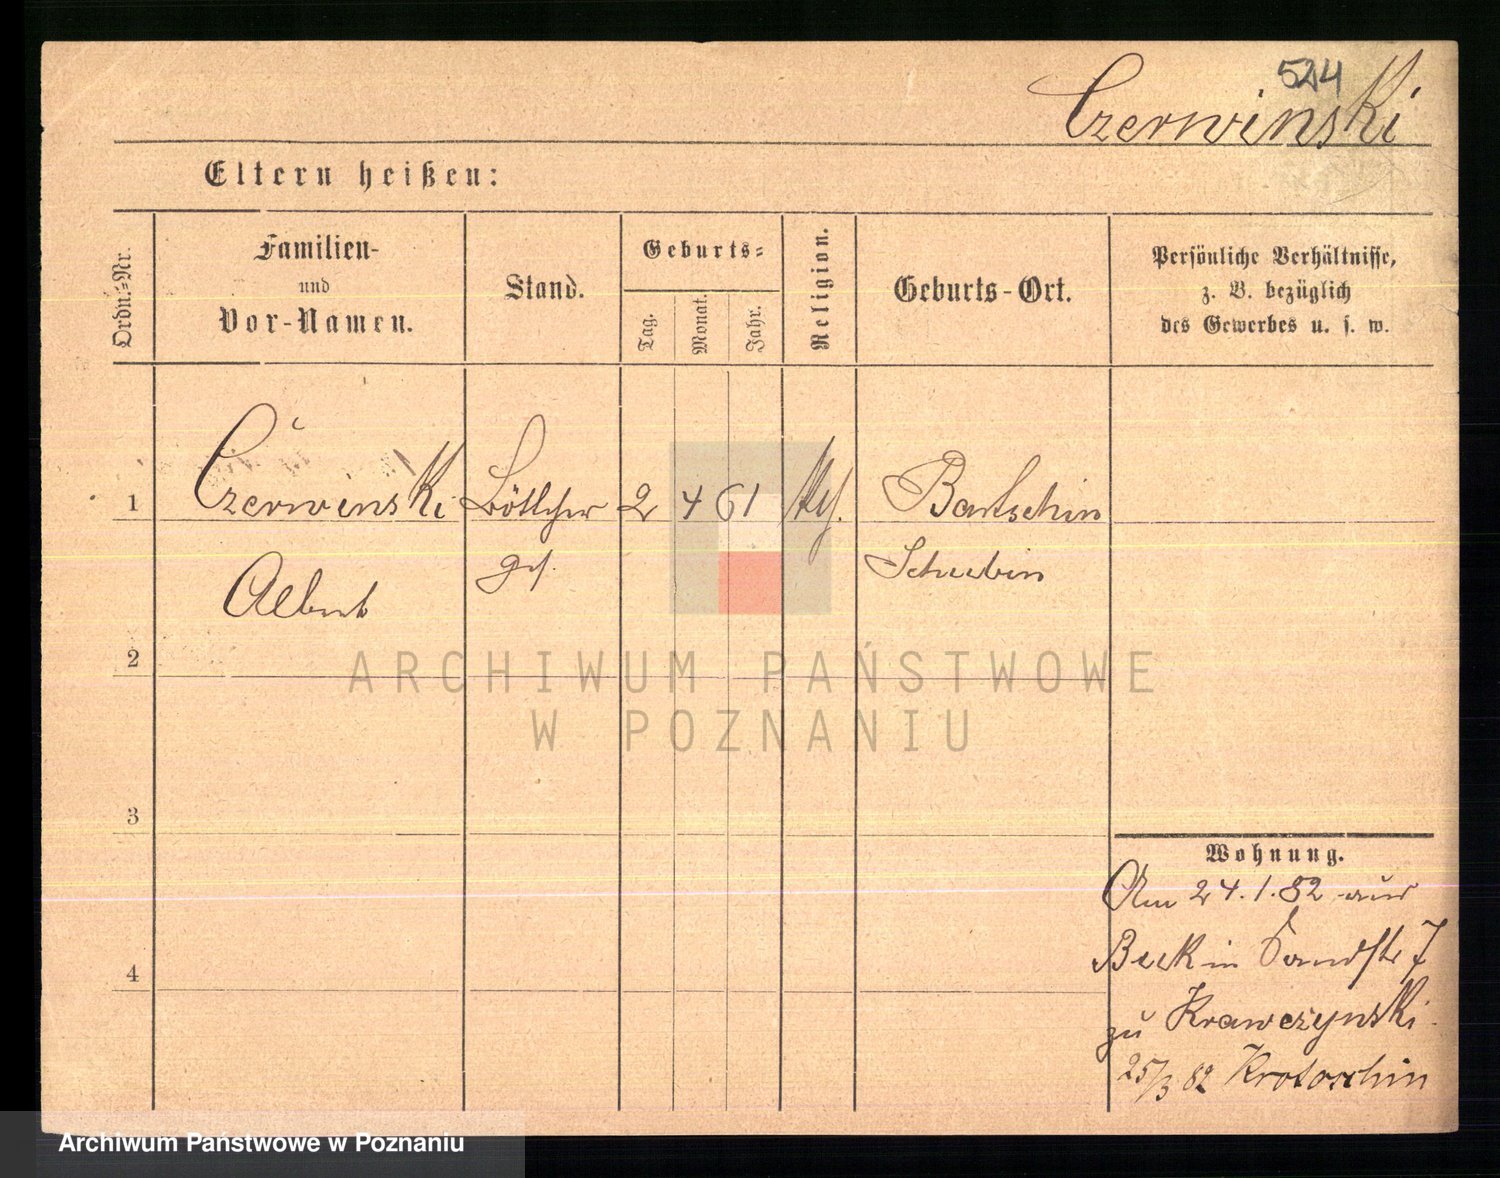 524
Czerwinski
Eltern heißen:
Ordn.-Nr.
Familien-
und
Vor-Namen.
Stand.
Geburts-
Tag.
Monat.
Jahr.
Religion.
Geburts-Ort.
Persönliche Verhältnisse,
z. B. bezüglich
des Gewerbes u. s. w.
1
Czerwinski
Böttcher
2
4
61
Bartschin
ges.
Schubin
Albert
2
3
4
Wohnung.
Am 24.1.82 aus
Buk in Sandstr 7
zu Krawczynski
25/3 82 Krotoschin
ARCHIWUM PAŃSTWOWE
W POZNANIU
Archiwum Państwowe w Poznaniu